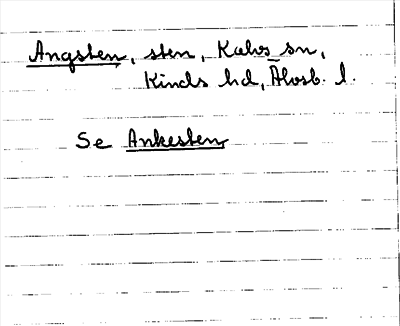 Angsten, sten, Kalvs sn,
Kinds hd, Älvsb. l.
Se Ankesten